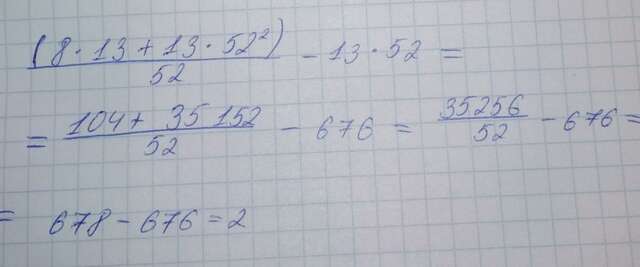 (8 · 13 + 13 · 52²) / 52 - 13 · 52 =
= (104 + 35 152) / 52 - 676 = 35256 / 52 - 676 =
= 678 - 676 = 2